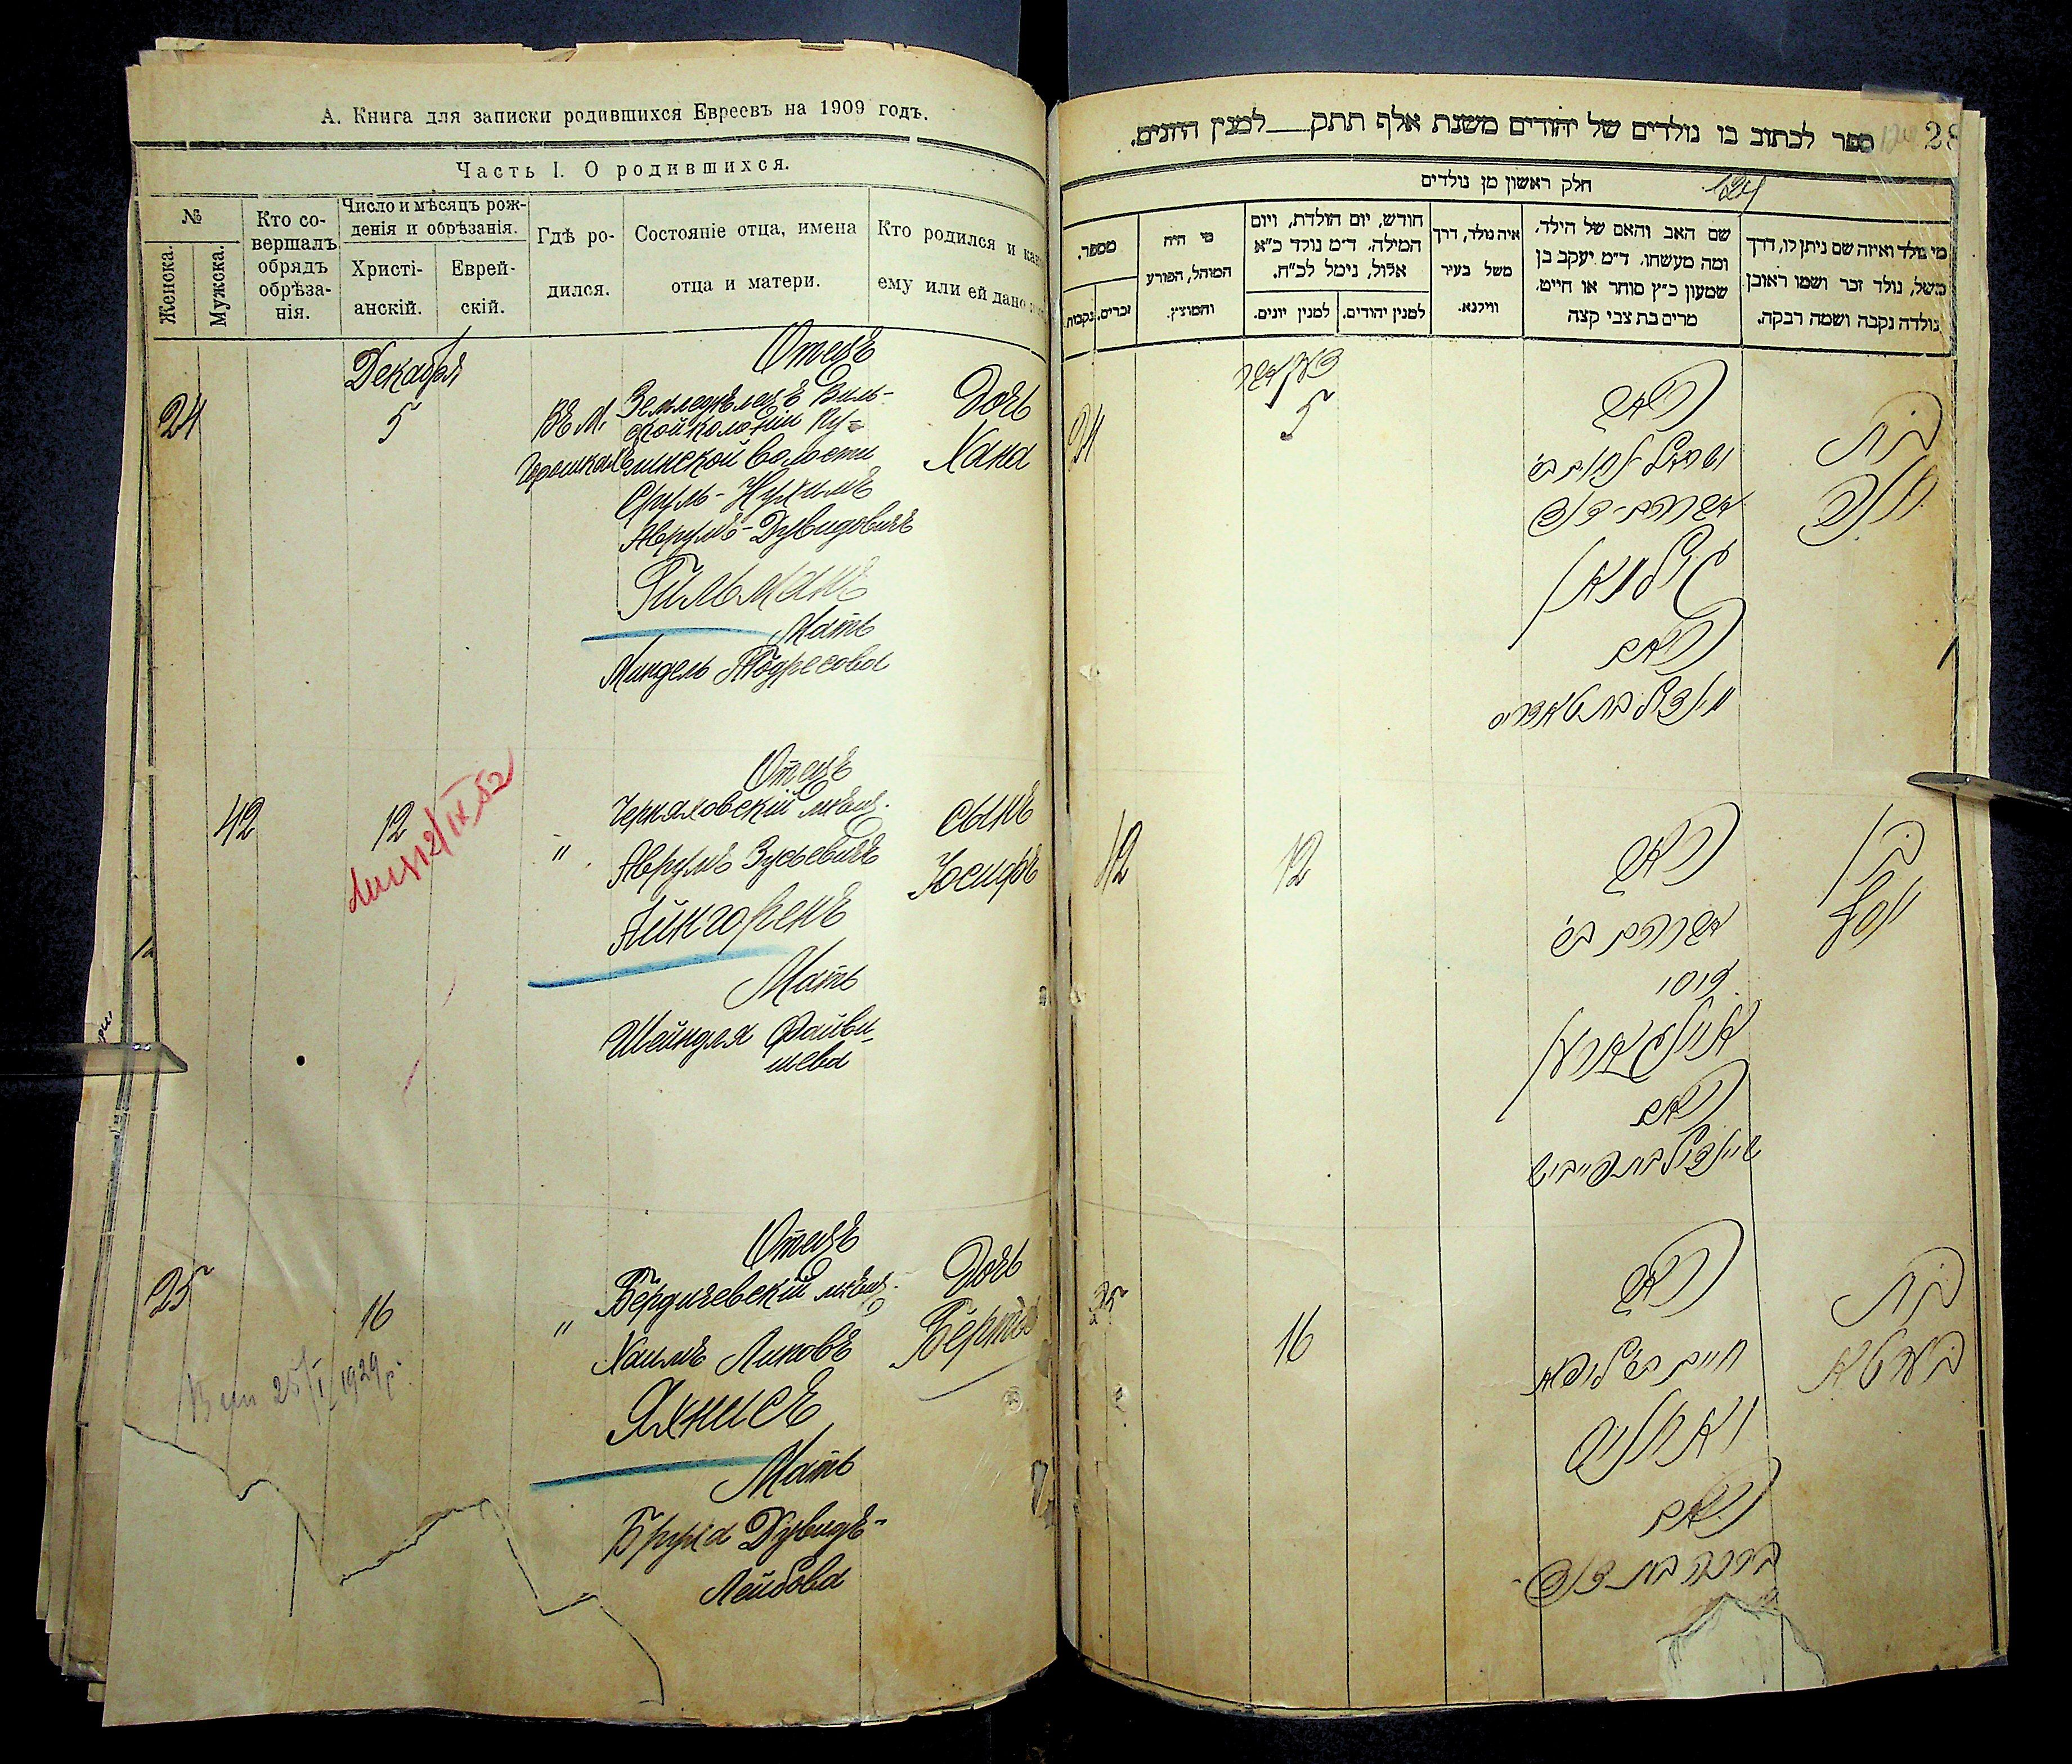 А. Книга для записки родившихся Евреевъ на 1909 годъ.
Часть I. О родившихся.
№
Женска.
Мужска.
Кто со-
вершалъ
обрядъ
обрѣза-
нія.
Число и мѣсяцъ рож-
денія и обрѣзанія.
Христі-
анскій.
Еврей-
скій.
Гдѣ ро-
дился.
Состояніе отца, имена
отца и матери.
Кто родился и какое
ему или ей дано
Декабря
24
5
Въ М.
Горошкахъ
Отецъ
Земледѣлецъ Виль-
ской колоніи Ку-
линской волости
Сруль-Нухимъ
Аврумъ-Дувидовичъ
Гильманъ
Мать
Миндель Тодресова
Дочь
Хана
42
12
12/IX 52
"
Отецъ
Черняховскій мѣщ.
Аврумъ Зусьевичъ
Айнгоренъ
Мать
Шейндля Файви-
шева
сынъ
Иосифъ
25
16
25/I 1929 р.
"
Отецъ
Бердичевскій мѣщ.
Хаимъ Липовъ
Яхнисъ
Мать
Бруха Дувидъ-
Лейбова
Дочь
Берта
28
ספר לכתוב בו נולדים של יהודים משנת אלף תתק למנין היונים.
124
חלק ראשון מן נולדים
מי נולד ואיזה שם ניתן לו, דרך
משל, נולד זכר ושמו ראובן
נולדה נקבה ושמה רבקה.
שם האב והאם של הילד,
ומה מעשהו. ד״מ יעקב בן
שמעון כ״ץ סוחר או חייט.
מרים בת צבי קצה
איה נולד, דרך
משל בעיר
ווילנא.
חודש, יום הולדת, ויום
המילה. ד״מ נולד כ״א
אלול, נימל לכ״ח.
למנין יהודים.
למנין יונים.
מי היה
המוהל, הפורע
והמוצץ.
מספר.
זכרים.
נקבות.
בת
חנה
האב
ישראל נחום ב׳
אברהם-דוד
גילמאן
האם
מינדיל בת טאדריס
דעקאבר
5
24
בן
יוסף
האב
אברהם ב׳
זוסי
איינגארען
האם
שיינדיל בת פייביש
12
42
בת
בערטא
האב
חיים ב׳ ליפא
יאחניס
האם
ברכה בת דוד
16
25